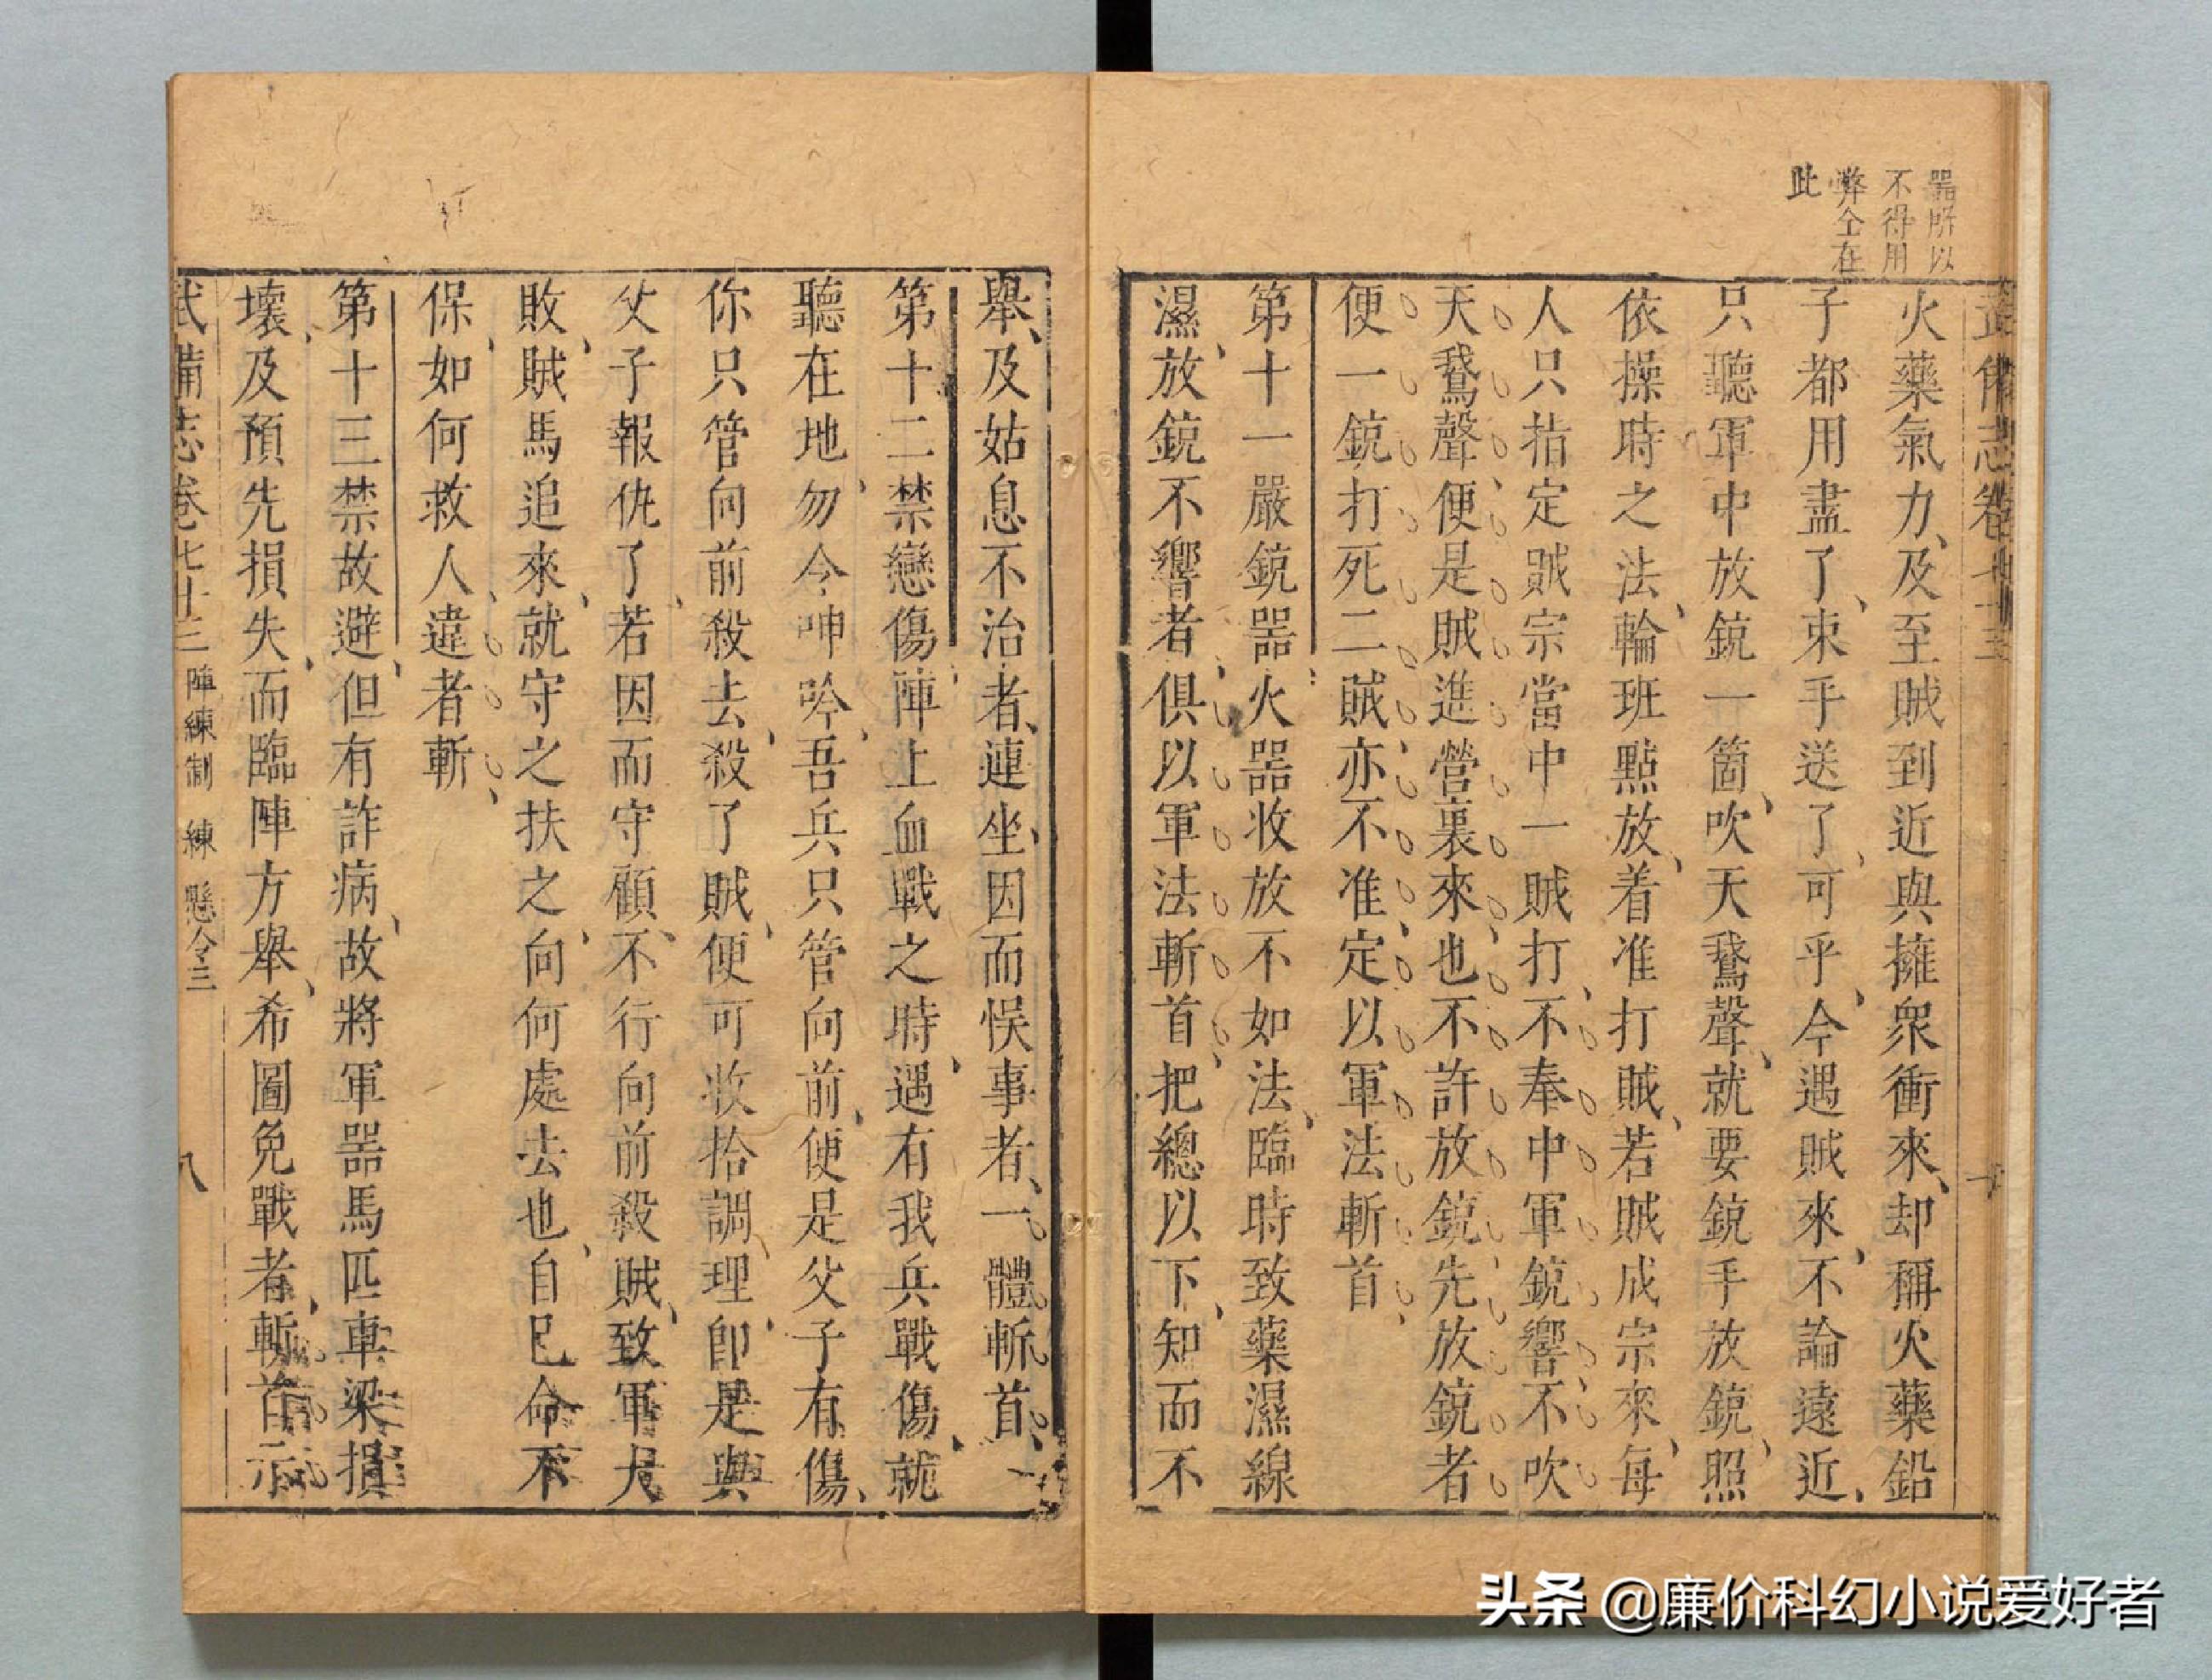 器所以
不得用
弊全在
此
火藥氣力及至賊到近與擁衆衝來却稱火藥鉛
子都用盡了束手送了可乎今遇賊來不論遠近
只聽軍中放銃一箇吹天鵞聲就要銃手放銃照
依操時之法輪班點放着准打賊若賊成宗來每
人只指定賊宗當中一賊打不奉中軍銃響不吹
天鵞聲便是賊進營裏來也不許放銃先放銃者
便一銃打死二賊亦不准定以軍法斬首
第十一嚴銃器火器收放不如法臨時致藥濕線
濕放銃不響者俱以軍法斬首把總以下知而不
舉及姑息不治者連坐因而悞事者一體斬首
第十二禁戀傷陣上血戰之時遇有我兵戰傷就
聽在地勿令呻吟吾兵只管向前便是父子有傷
你只管向前殺去殺了賊便可收拾調理卽是與
父子報仇了若因而守顧不行向前殺賊致軍大
敗賊馬追來就守之扶之向何處去也自己命不
保如何救人違者斬
第十三禁故避但有詐病故將軍器馬匹車梁損
壞及預先損失而臨陣方舉希圖免戰者斬首示
武備志卷七十三 陣練制 練 懸令三 八
头条 @廉价科幻小说爱好者